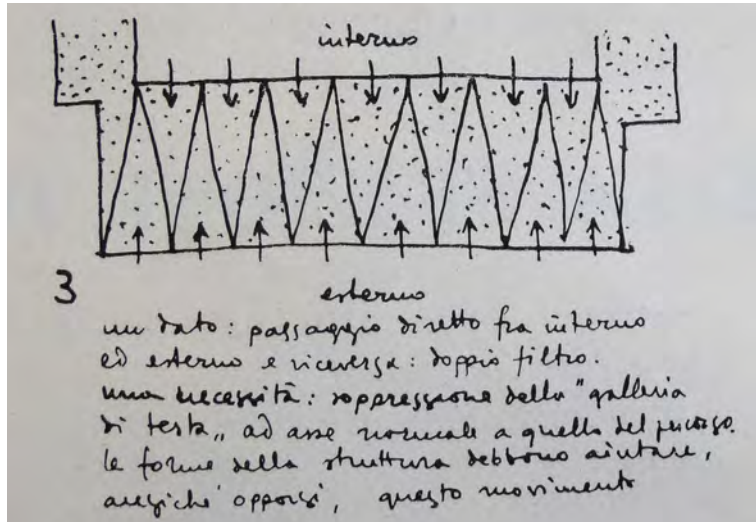 interno
3
esterno
un dato: passaggio diretto fra interno
ed esterno e viceversa: doppio filtro.
una necessità: soppressione della "galleria
di testa„ ad asse normale a quello del percorso.
le forme della struttura debbono aiutare,
anziché opporsi, questo movimento